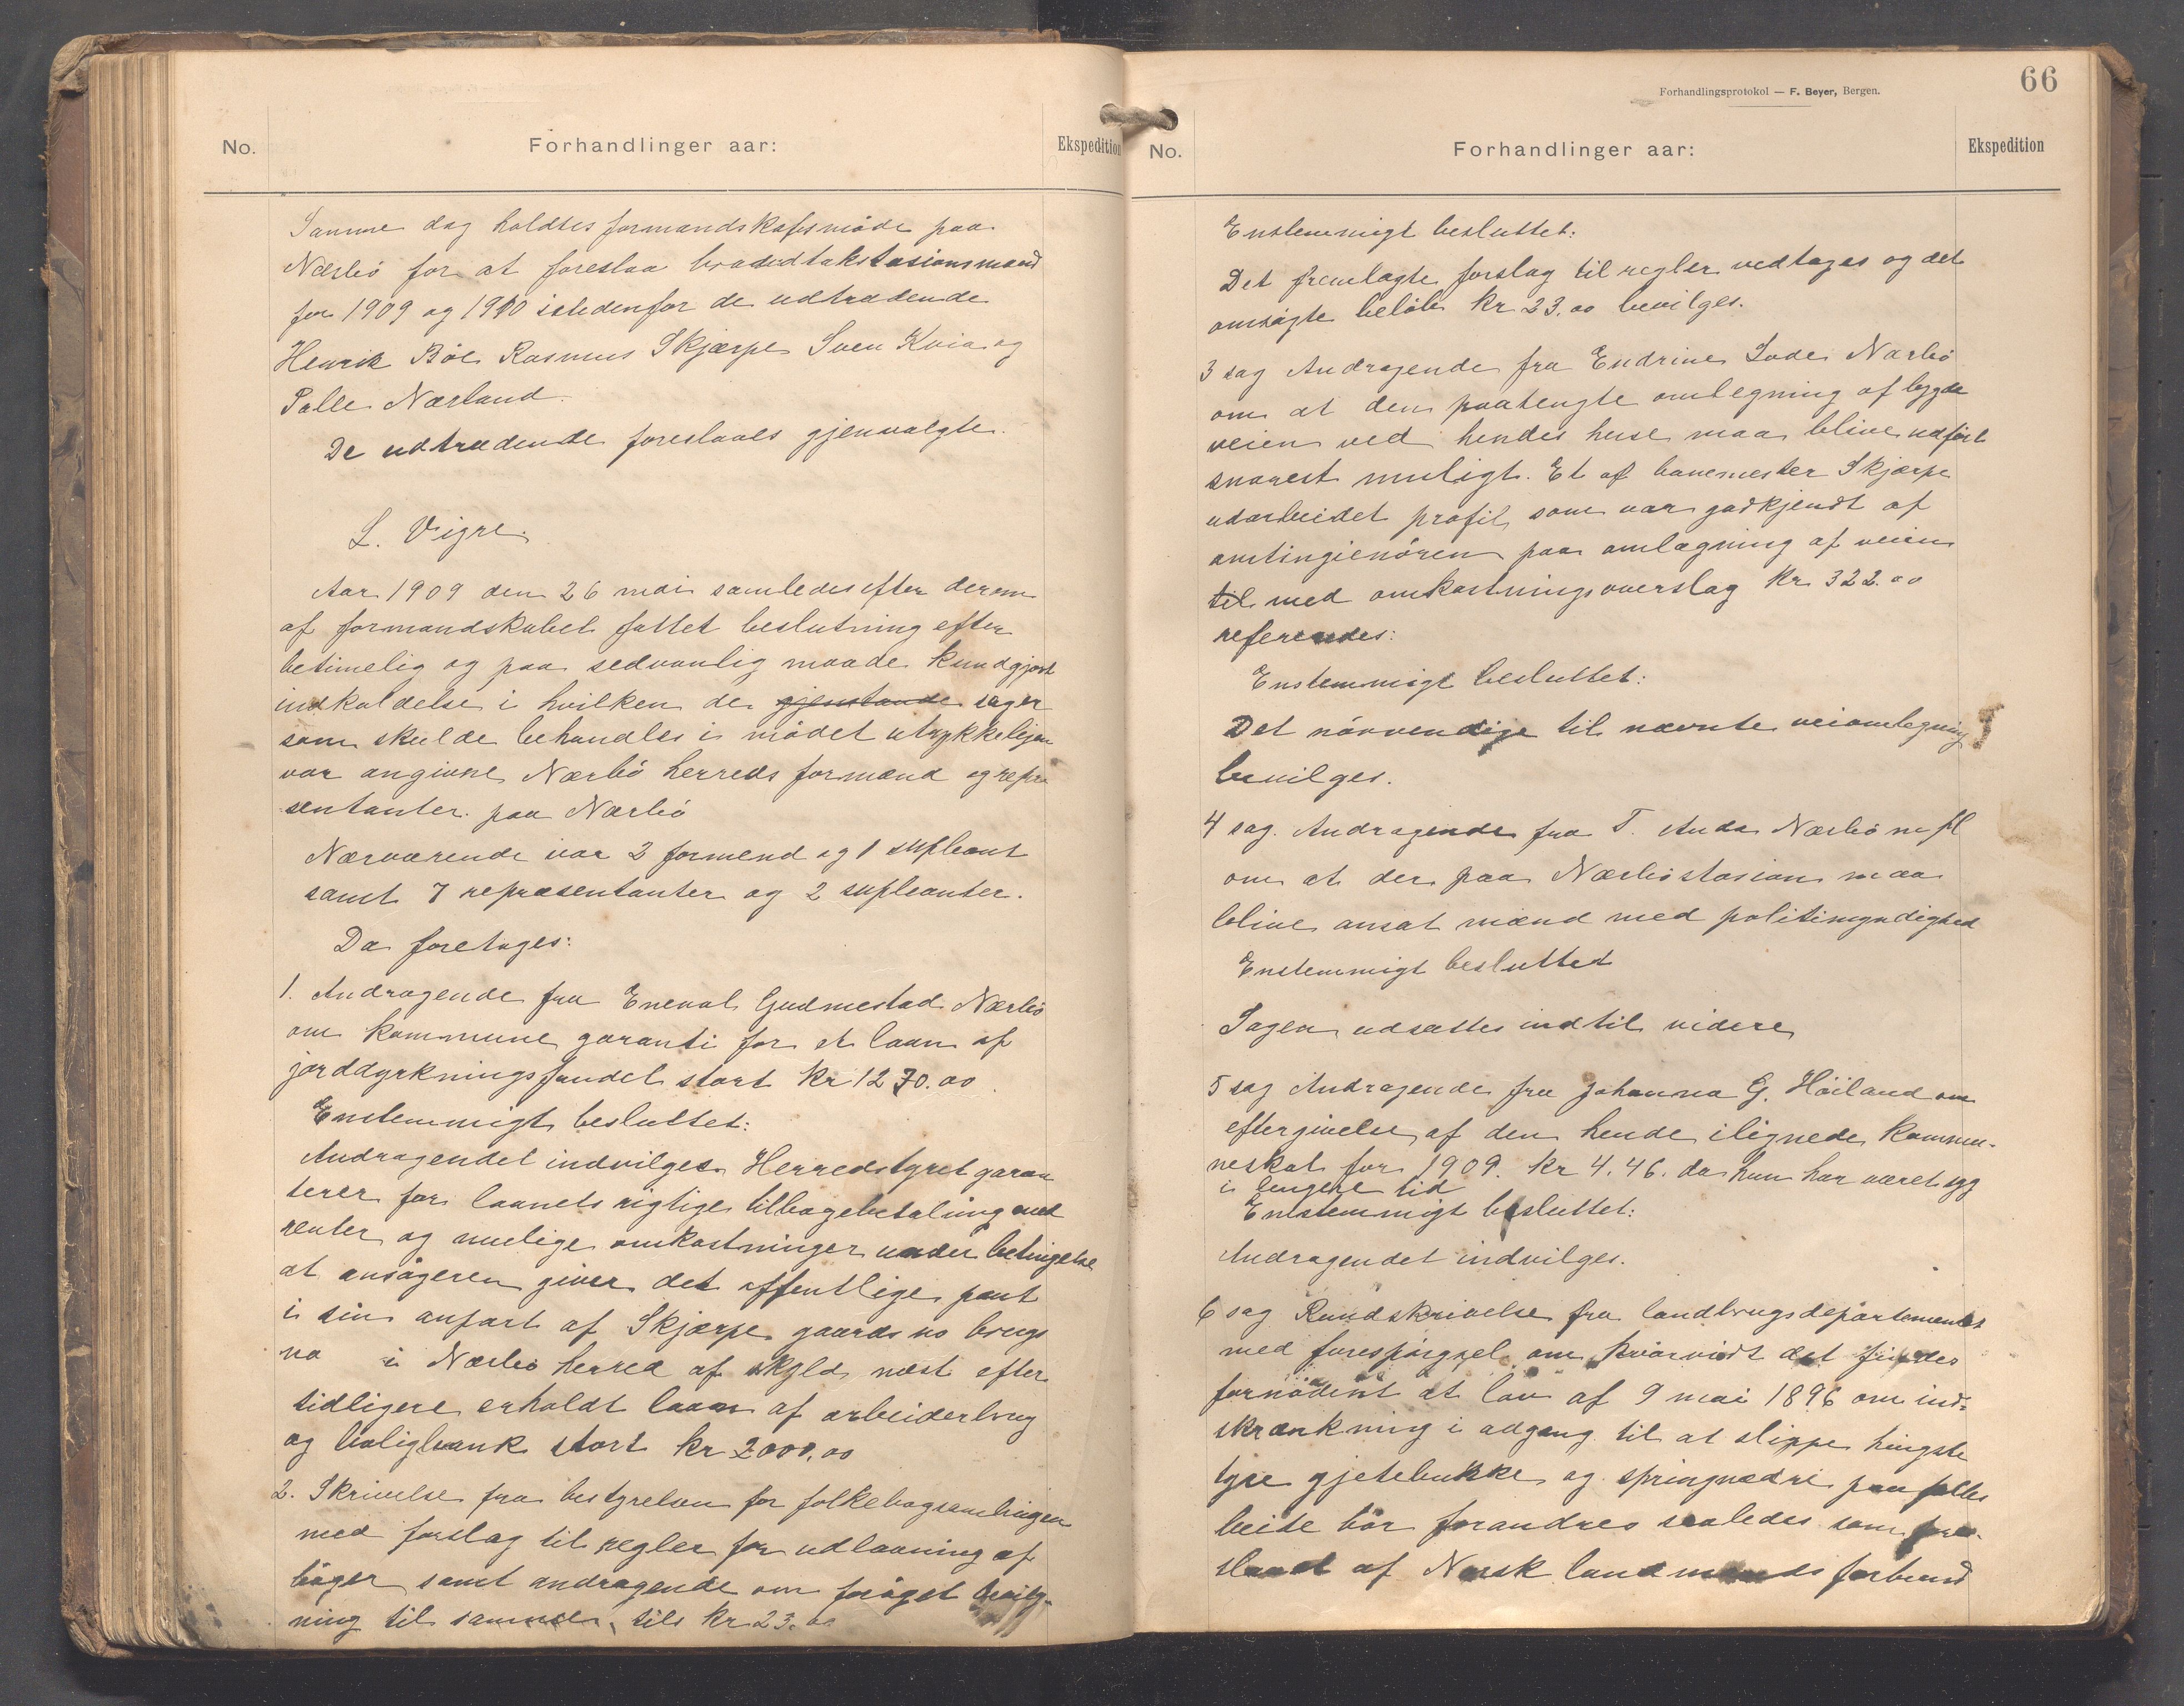 No.
Forhandlinger aar:
Ekspedition
Samme dag holdtes formandskapsmöde paa
Nærbö for at foreslaa brandtakstasionsmænd
for 1909 og 1910 istedenfor de udtrædende
Henrik Böe Rasmus Skjærpe Sven Kvia og
Salle Nærland.
De udtrædende foreslaaes gjenvalgte.
L. Vigre.
Aar 1909 den 26 mai samledes efter derom
af formandskabet fattet beslutning efter
betimelig og paa sedvanlig maade kundgjort
indkaldelse i hvilken de gjenstande sager
som skulde behandles i mödet utrykkeligen
var angivne Nærbö herreds formænd og repræ
sentanter paa Nærbö
Nærværende var 3 formend og 1 supleant
samt 7 repræsentanter og 2 supleanter.
Da foretages:
1. Andragende fra Enevol Gudmestad Nærbö
om kommune garanti for et laan af
jorddyrkningsfondet stort kr 1270.00
Enstemmigt besluttet:
Andragendet indvilges. Herredstyret garan
terer for laanets rigtige tilbagebetaling med
renter og mulige omkostninger under betingelse
at ansögeren giver det offentlige pant
i sin anpart af Skjærpe gaards no brugs
no i Nærbö herred af skyld næst efter
tidligere erholdt laan af arbeiderbrug
og boligbank stort kr 2000,00
2. Skrivelse fra bestyrelsen for folkebogsamlingen
med forslag til regler for udlaaning af
böger samt andragende om foröget bevilg-
ning til samme, til kr 23.00
Forhandlingsprotokol — F. Beyer, Bergen.
66
No.
Forhandlinger aar:
Ekspedition
Enstemmigt besluttet:
Det fremlagte forslag til regler vedtages og det
omsögte belöb kr 23.00 bevilges.
3 sag Andragende fra Endrine Lode Nærbö
om at den paatengte omlegning af bygde
veien ved hendes huse maa blive udfört
snarest muligt. Et af banemester Skjærpe
udarbeidet profil som var godkjendt af
amtingienören paa omlægning af veien
til med omkostningsoverslag kr 322.00
refereredes:
Enstemmigt besluttet:
Det növendige til nævnte veiomlegning
bevilges.
4 sag. Andragende fra T. Anda Nærbö m fl
om at der paa Nærbö stasion maa
blive ansat mænd med politimyndighed
Enstemmigt besluttet
Sagen udsættes indtil videre
5 sag Andragende fra Johanna G. Höiland om
eftergivelse af den hende ilignede kommu-
neskat for 1909. kr 4.46. da hun har været syg
i lengere tid
Enstemmigt besluttet:
Andragendet indvilges.
6 sag Rundskrivelse fra landbrugsdepartementet
med forespörgsel om hvorvidt det findes
fornödent at lov af 9 mai 1896 om ind-
skrænkning i adgang til at slippe hingste
tyre gjetebukke og springvædre paa fælles
beite bör forandres saaledes som fore-
slaaet af Norsk landmands forbund